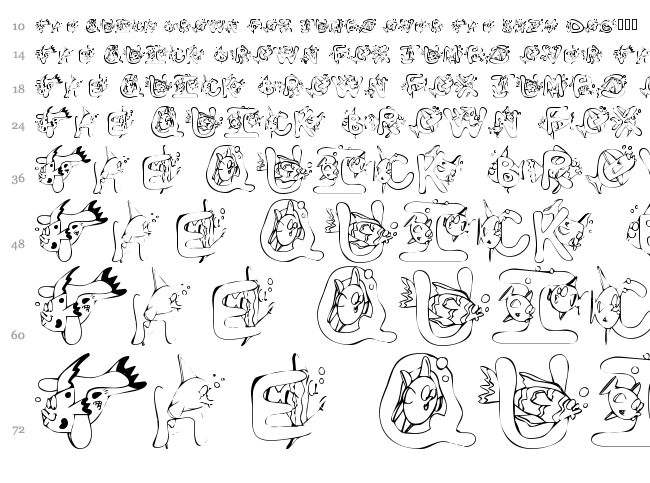 10 The Quick Brown Fox Jumps Over The Lazy Dog
14 The Quick Brown Fox Jumps Over Th
18 The Quick Brown Fox Jumps O
24 The Quick Brown Fox
36 The Quick Bro
48 The Quick B
60 The Quic
72 The Qui